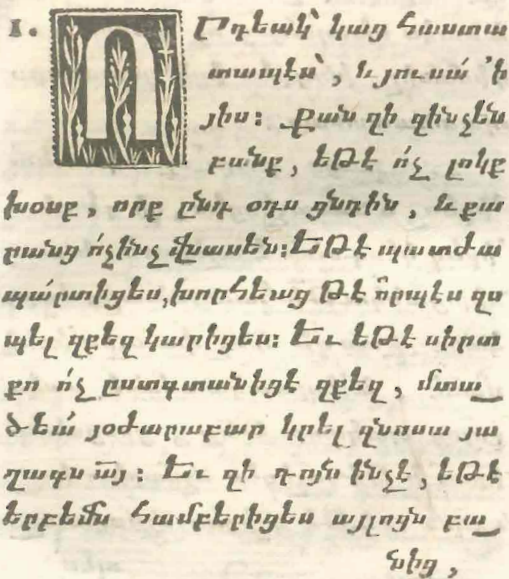 1. ՈՐդեակ՝ կաց հաստա
տապէս՝, և յուսա՛ ՚ի
յիս։ Քան զի զինչ են
բանք, եթէ ո՛չ լոկք
խօսք, որք ընդ օդս ցնդին, և քա
րանց ո՛չինչ վնասեն։ Եթէ պատժա
պա՛րտիցես, խորհեաց թէ ո՞րպէս զս
պել զքեզ կարիցես։ Եւ եթէ սիրտ
քո ո՛չ ըստգտանիցէ զքեզ, մտա_
ծեա՛ յօժարաբար կրել զնոսա յա
ղագս ա՟յ։ Եւ զի դոյն ինչ է, եթէ
երբեմն համբերիցես այլոյն բա_
նից,